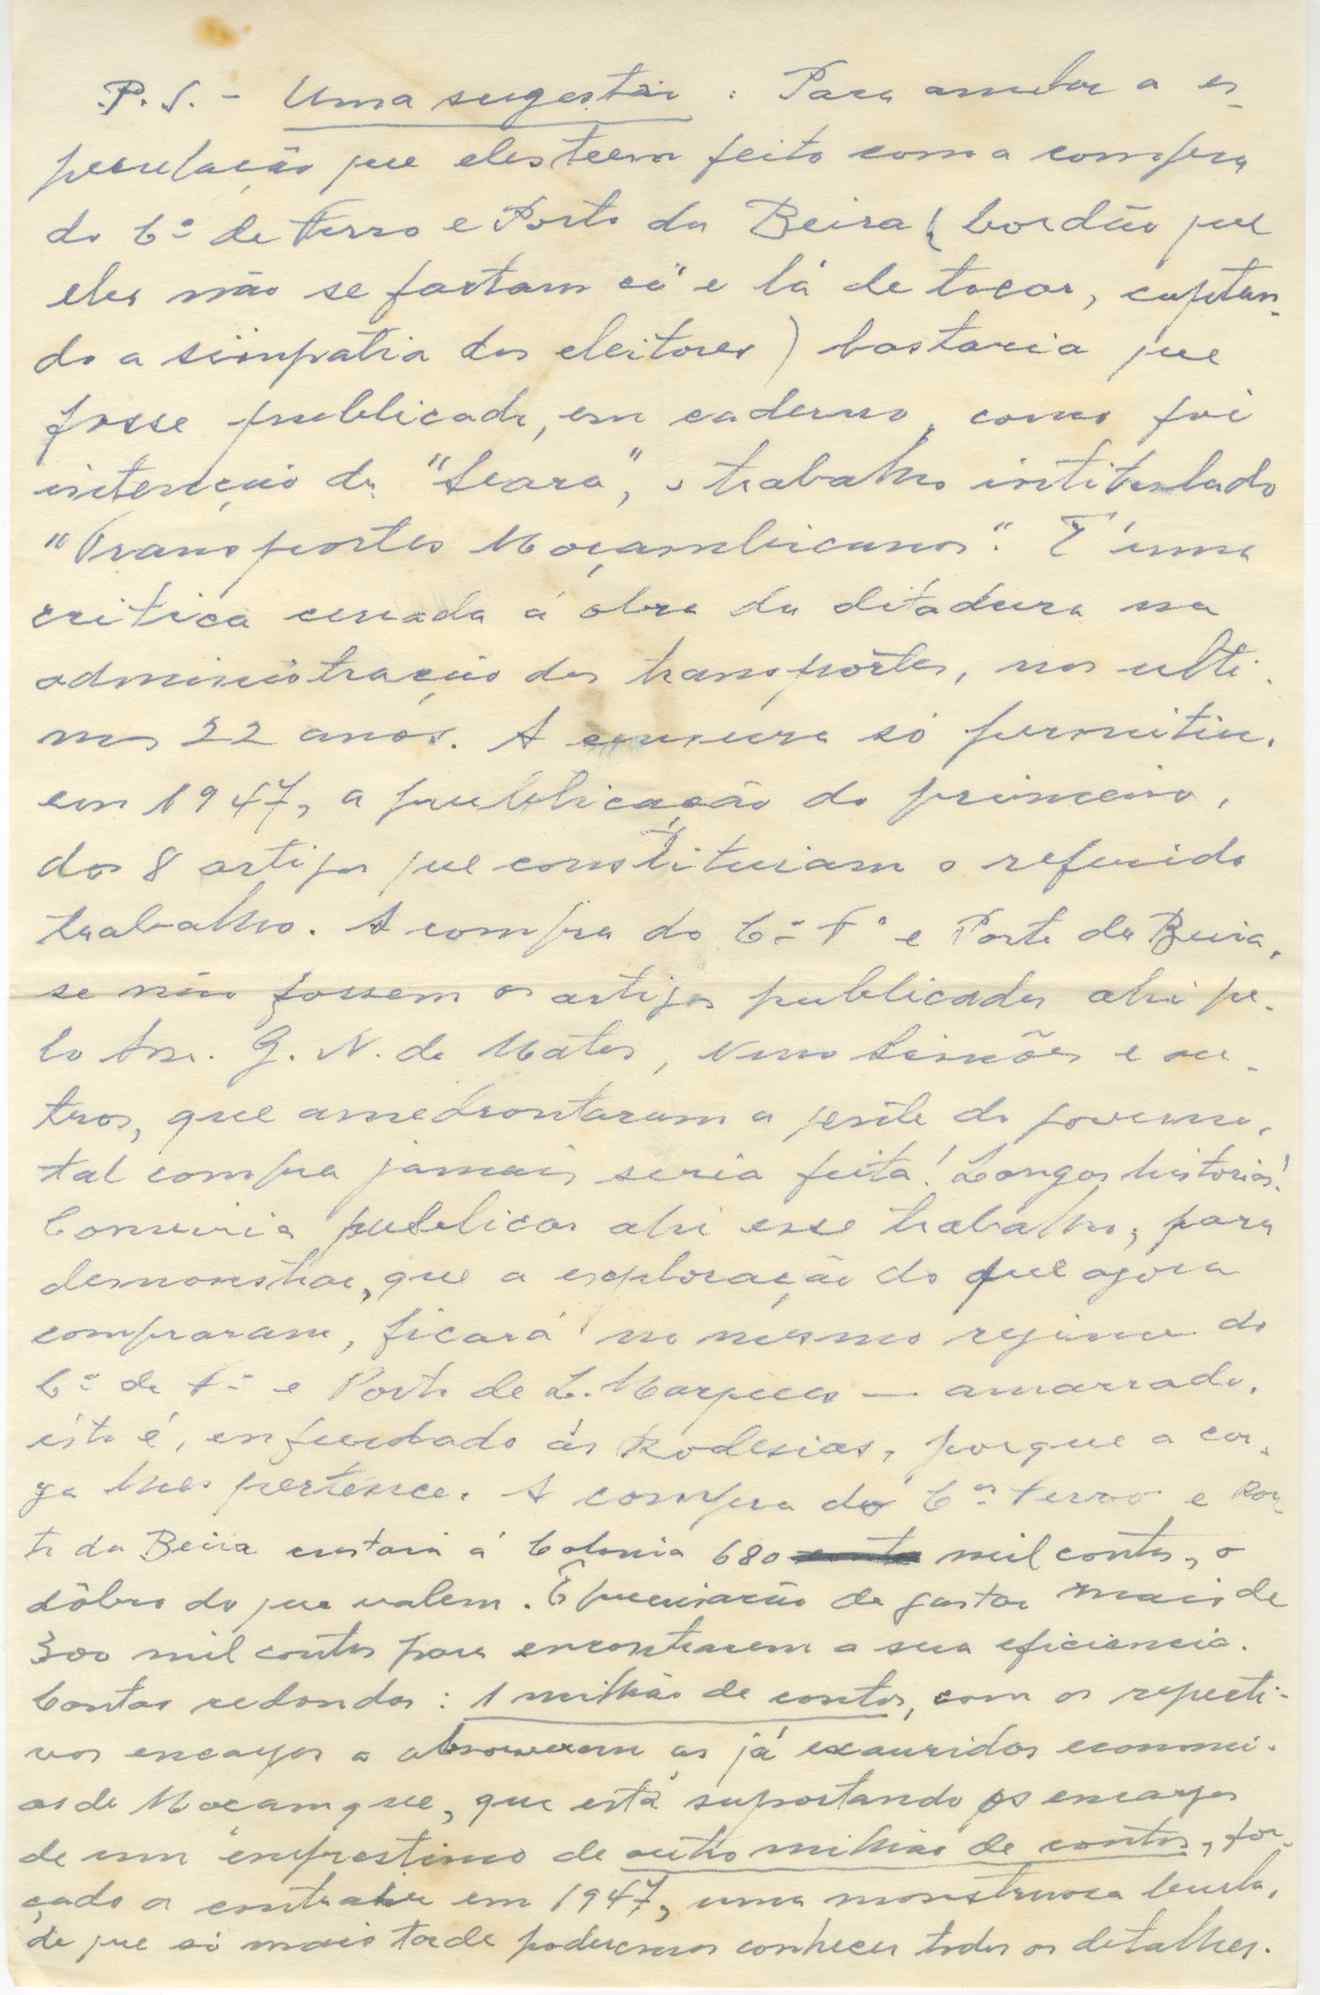 P. S. - Uma sugestão : Para anular a es-
peculação que eles teem feito com a compra
do C.º de Ferro e Porto da Beira (bordão que
eles não se fartam cá e lá de tocar, captan-
do a simpatia dos eleitores) bastaria que
fosse publicado, em caderno, como foi
intenção da "Seara", o trabalho intitulado
"Transportes Moçambicanos". É uma
critica cerrada á obra da ditadura na
administração dos transportes, nos ulti-
mos 22 anos. A censura só permitiu,
em 1947, a publicação do primeiro,
dos 8 artigos que constituiam o referido
trabalho. A compra do C.º F.º e Porto da Beira,
se não fossem os artigos publicados ahi pe-
lo Snr. G. N. de Matos, Nuno Simões e ou-
tros, que amedrontaram a gente do governo,
tal compra jamais seria feita! Longas historias!
Conviria publicar ahi esse trabalho, para
demonstrar, que a exploração do que agora
compraram, ficará no mesmo regime do
C.º de F.º e Porto de L. Marques — amarrado,
isto é, enfeudado ás Rodesias, porque a car-
ga lhes pertence. A compra do C.º Ferro e Por-
to da Beira custará á Colonia 680 mil contos, o
dôbro do que valem. E precisarão de gastar mais de
300 mil contos para encontrarem a sua eficiencia.
Contas redondas : 1 milhão de contos, com os respecti-
vos encargos a absorverem as já exauridas economi-
as de Moçamque, que está suportando os encargos
de um emprestimo de outro milhão de contos, for-
çado a contrahir em 1947, uma monstruosa burla,
de que só mais tarde poderemos conhecer todos os detalhes.